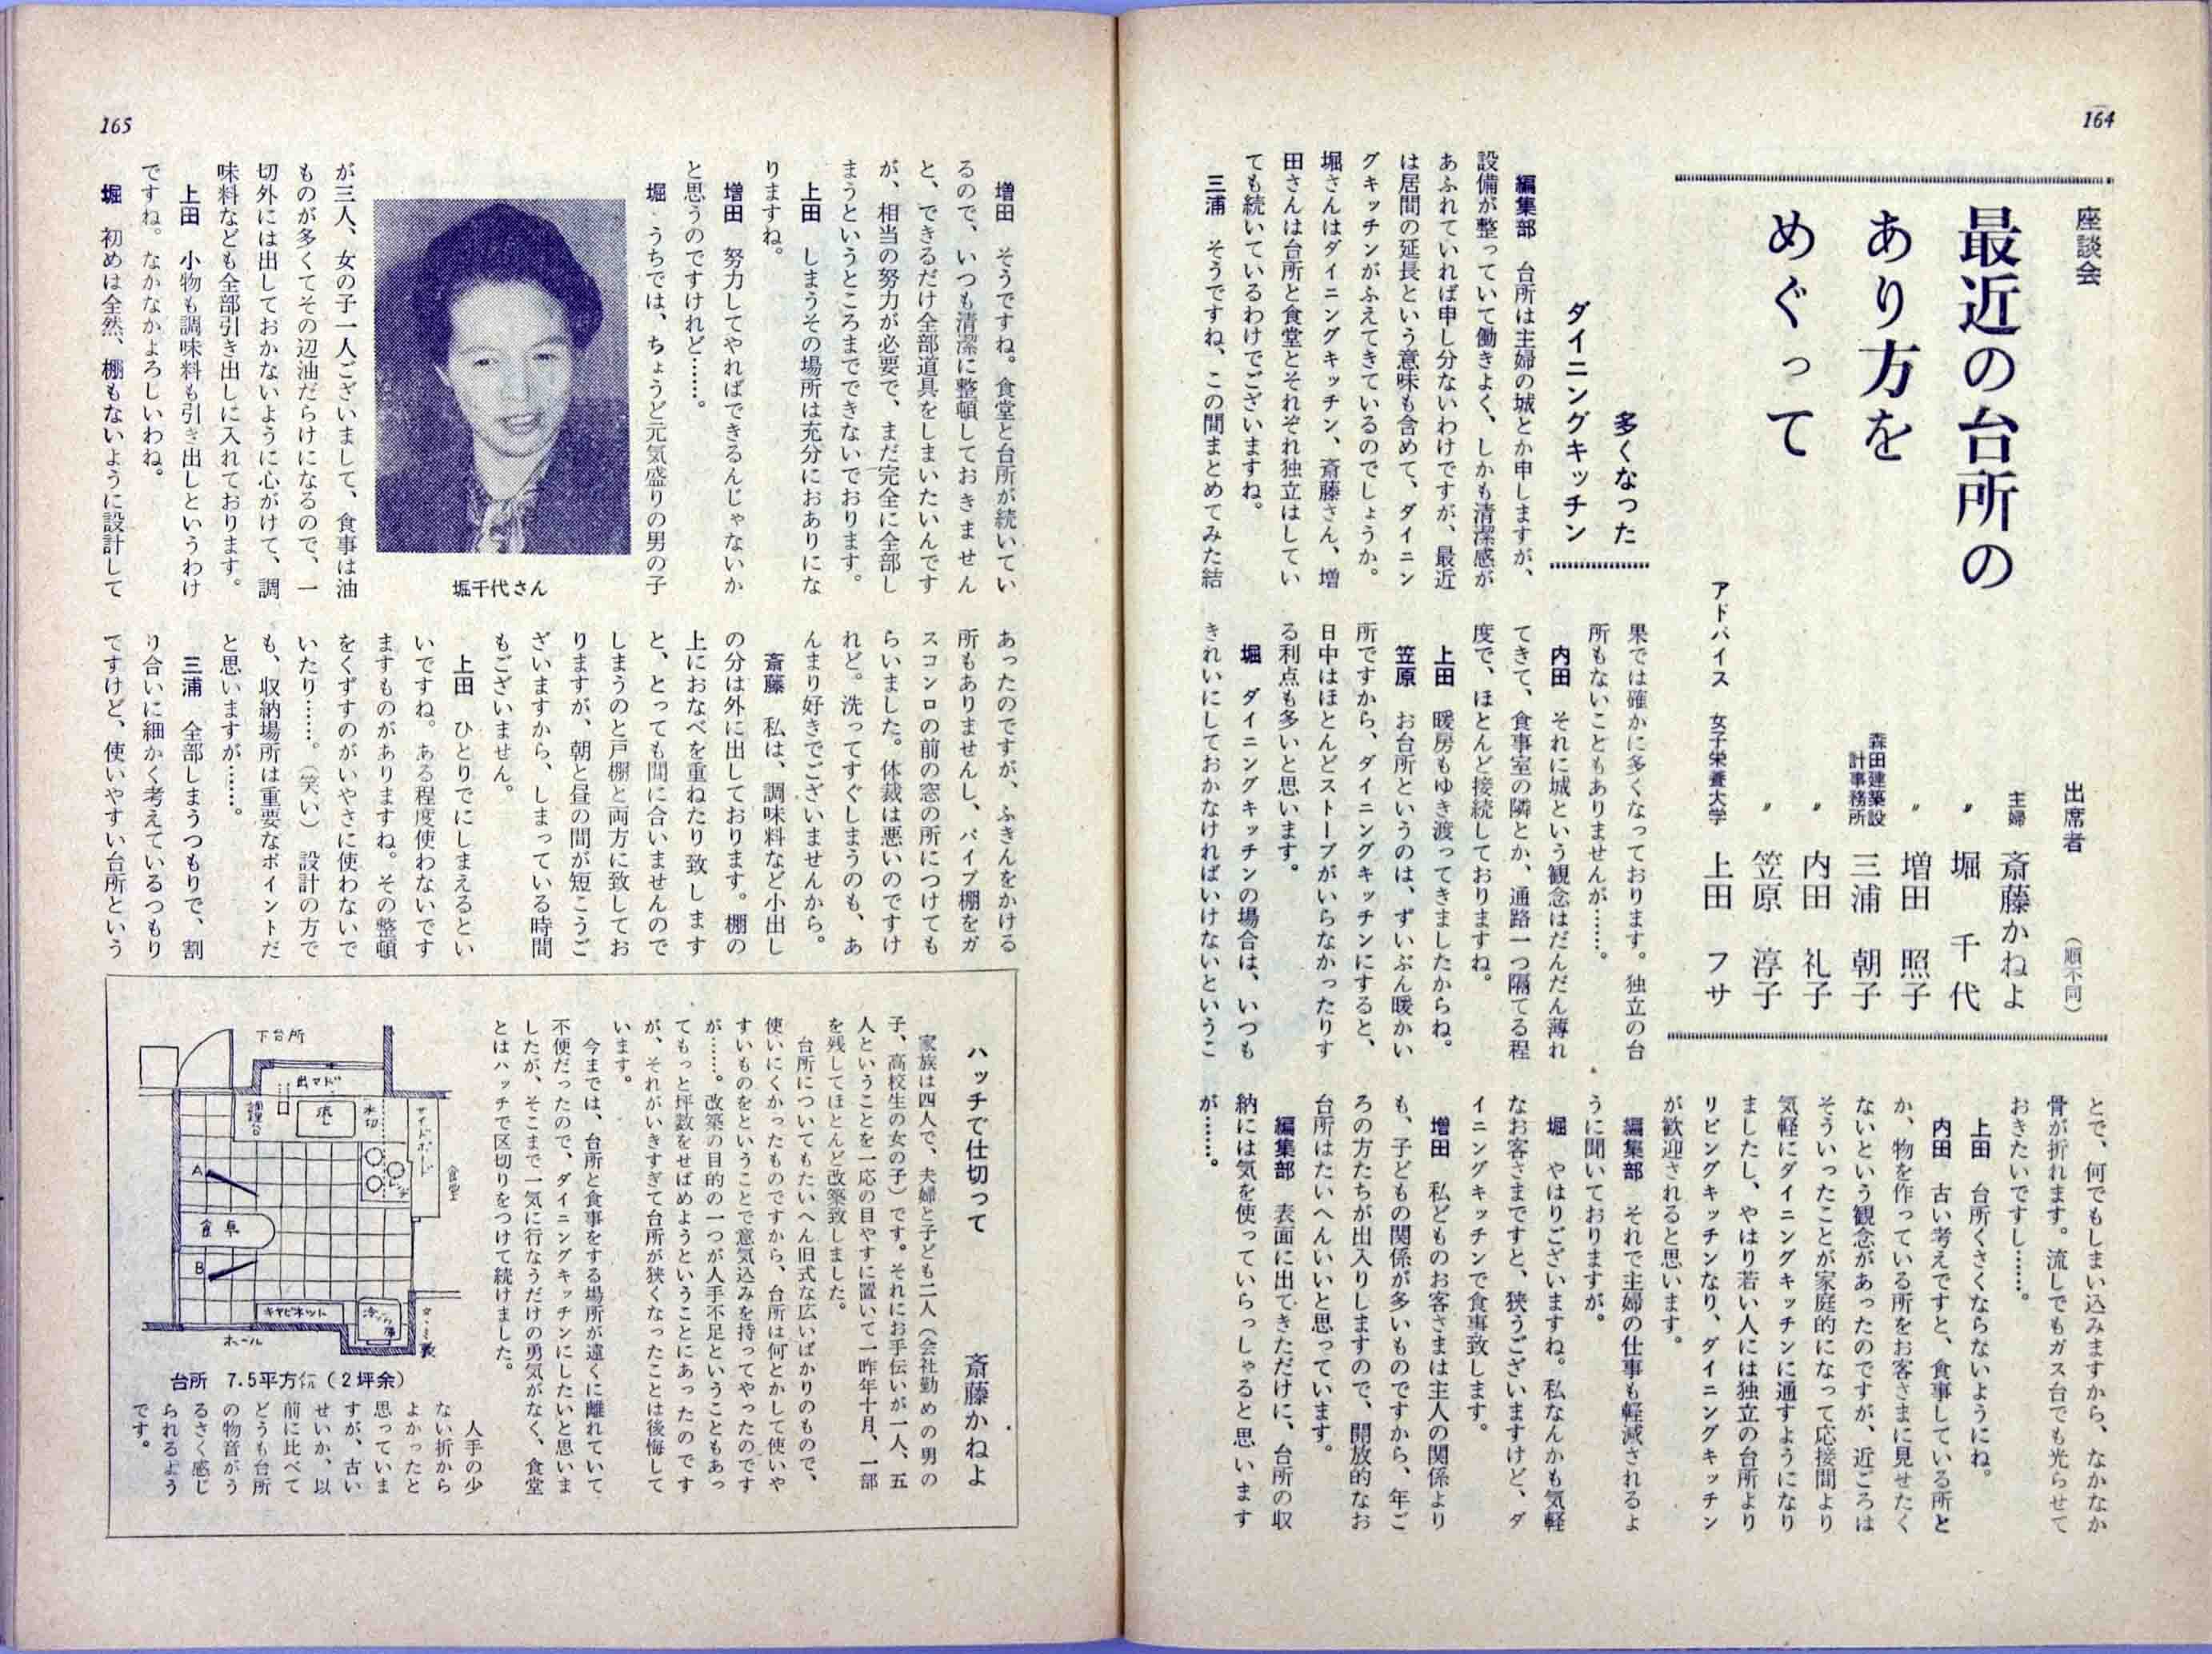 164
座談会
最近の台所の
あり方を
めぐって
出席者 (順不同)
主婦 斎藤かねよ
〃 堀 千代
〃 増田 照子
森田建築設計事務所 三浦 朝子
〃 内田 礼子
〃 笠原 淳子
アドバイス 女子栄養大学 上田 フサ
多くなった
ダイニングキッチン
編集部 台所は主婦の城とか申しますが、
設備が整っていて働きよく、しかも清潔感が
あふれていれば申し分ないわけですが、最近
は居間の延長という意味も含めて、ダイニン
グキッチンがふえてきているのでしょうか。
堀さんはダイニングキッチン、斎藤さん、増
田さんは台所と食堂とそれぞれ独立はしてい
ても続いているわけでございますね。
三浦 そうですね、この間まとめてみた結
果では確かに多くなっております。独立の台
所もないこともありませんが……。
内田 それに城という観念はだんだん薄れ
てきて、食事室の隣とか、通路一つ隔てる程
度で、ほとんど接続しておりますね。
上田 暖房もゆき渡ってきましたからね。
笠原 お台所というのは、ずいぶん暖かい
所ですから、ダイニングキッチンにすると、
日中はほとんどストーブがいらなかったりす
る利点も多いと思います。
堀 ダイニングキッチンの場合は、いつも
きれいにしておかなければいけないというこ
とで、何でもしまい込みますから、なかなか
骨が折れます。流しでもガス台でも光らせて
おきたいですし……。
上田 台所くさくならないようにね。
内田 古い考えですと、食事している所と
か、物を作っている所をお客さまに見せたく
ないという観念があったのですが、近ごろは
そういったことが家庭的になって応接間より
気軽にダイニングキッチンに通すようになり
ましたし、やはり若い人には独立の台所より
リビングキッチンなり、ダイニングキッチン
が歓迎されると思います。
編集部 それで主婦の仕事も軽減されるよ
うに聞いておりますが。
堀 やはりございますね。私なんかも気軽
なお客さまですと、狭うございますけど、ダ
イニングキッチンで食事致します。
増田 私どものお客さまは主人の関係より
も、子どもの関係が多いものですから、年ご
ろの方たちが出入りしますので、開放的なお
台所はたいへんいいと思っています。
編集部 表面に出てきただけに、台所の収
納には気を使っていらっしゃると思います
が……。
165
増田 そうですね。食堂と台所が続いてい
るので、いつも清潔に整頓しておきません
と、できるだけ全部道具をしまいたいんです
が、相当の努力が必要で、まだ完全に全部し
まうというところまでできないでおります。
上田 しまうその場所は充分におありにな
りますね。
増田 努力してやればできるんじゃないか
と思うのですけれど……。
堀 うちでは、ちょうど元気盛りの男の子
堀千代さん
が三人、女の子一人ございまして、食事は油
ものが多くてその辺油だらけになるので、一
切外には出しておかないように心がけて、調
味料なども全部引き出しに入れております。
上田 小物も調味料も引き出しというわけ
ですね。なかなかよろしいわね。
堀 初めは全然、棚もないように設計して
あったのですが、ふきんをかける
所もありませんし、パイプ棚をガ
スコンロの前の窓の所につけても
らいました。体裁は悪いのですけ
れど。洗ってすぐしまうのも、あ
んまり好きでございませんから。
斎藤 私は、調味料など小出し
の分は外に出しております。棚の
上におなべを重ねたり致します
と、とっても間に合いませんので
しまうのと戸棚と両方に致してお
りますが、朝と昼の間が短こうご
ざいますから、しまっている時間
もございません。
上田 ひとりでにしまえるとい
いですね。ある程度使わないです
ますものがありますね。その整頓
をくずすのがいやさに使わないで
いたり……。(笑い) 設計の方で
も、収納場所は重要なポイントだ
と思いますが……。
三浦 全部しまうつもりで、割
り合いに細かく考えているつもり
ですけど、使いやすい台所という
ハッチで仕切って
斎藤かねよ
家族は四人で、夫婦と子ども二人(会社勤めの男の
子、高校生の女の子)です。それにお手伝いが一人、五
人ということを一応の目やすに置いて一昨年十月、一部
を残してほとんど改築致しました。
台所についてもたいへん旧式な広いばかりのもので、
使いにくかったものですから、台所は何とかして使いや
すいものをということで意気込みを持ってやったのです
が……。改築の目的の一つが人手不足ということもあっ
てもっと坪数をせばめようということにあったのです
が、それがいきすぎて台所が狭くなったことは後悔して
います。
今までは、台所と食事をする場所が遠くに離れていて
不便だったので、ダイニングキッチンにしたいと思いま
したが、そこまで一気に行なうだけの勇気がなく、食堂
とはハッチで区切りをつけて続けました。
人手の少
ない折から
よかったと
思っていま
すが、古い
せいか、以
前に比べて
どうも台所
の物音がう
るさく感じ
られるよう
です。
下台所
出マド
調理台
流し
水切
サイドボード
食堂
レンジ
A
食卓
B
キャビネット
冷ゾウ庫
ホール
台所 7.5平方㍍(2坪余)